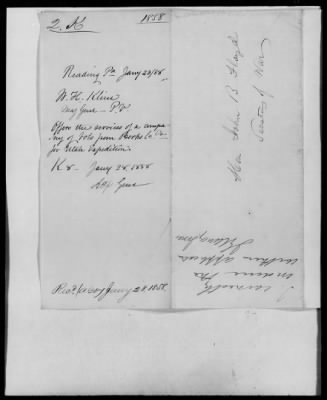 2. M 1858
Reading Pa Jany 23/58.
W. H. Klein
Maj Genl P. V
Offers the services of a compa
ny of Vols from Berks Co. Pa
for Utah Expedition.
Jany 28, 1858
Genl
Recd Jany 28 1858
Hon John B Floyd
Secretary of War
I earnestly
endorse the
within